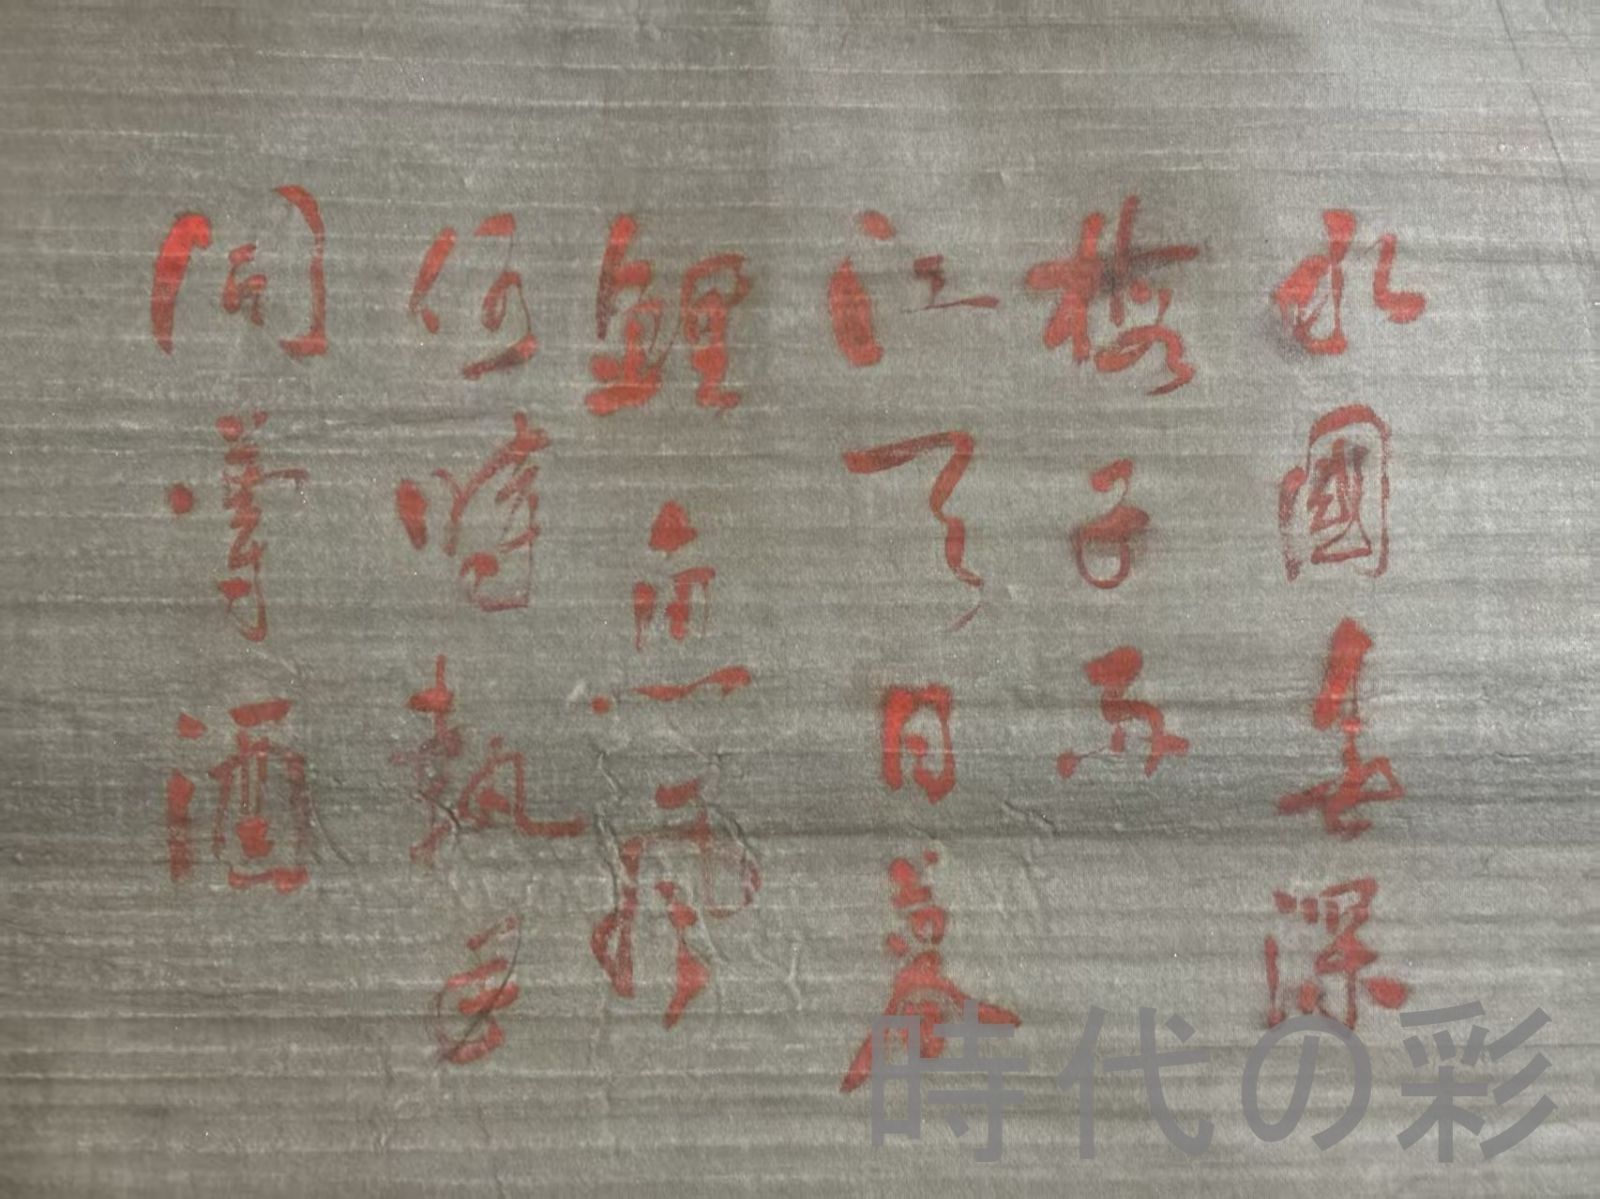 水國春深
梅子雨
江天日暮
鯉魚風
何時執手
同酒
時代の彩